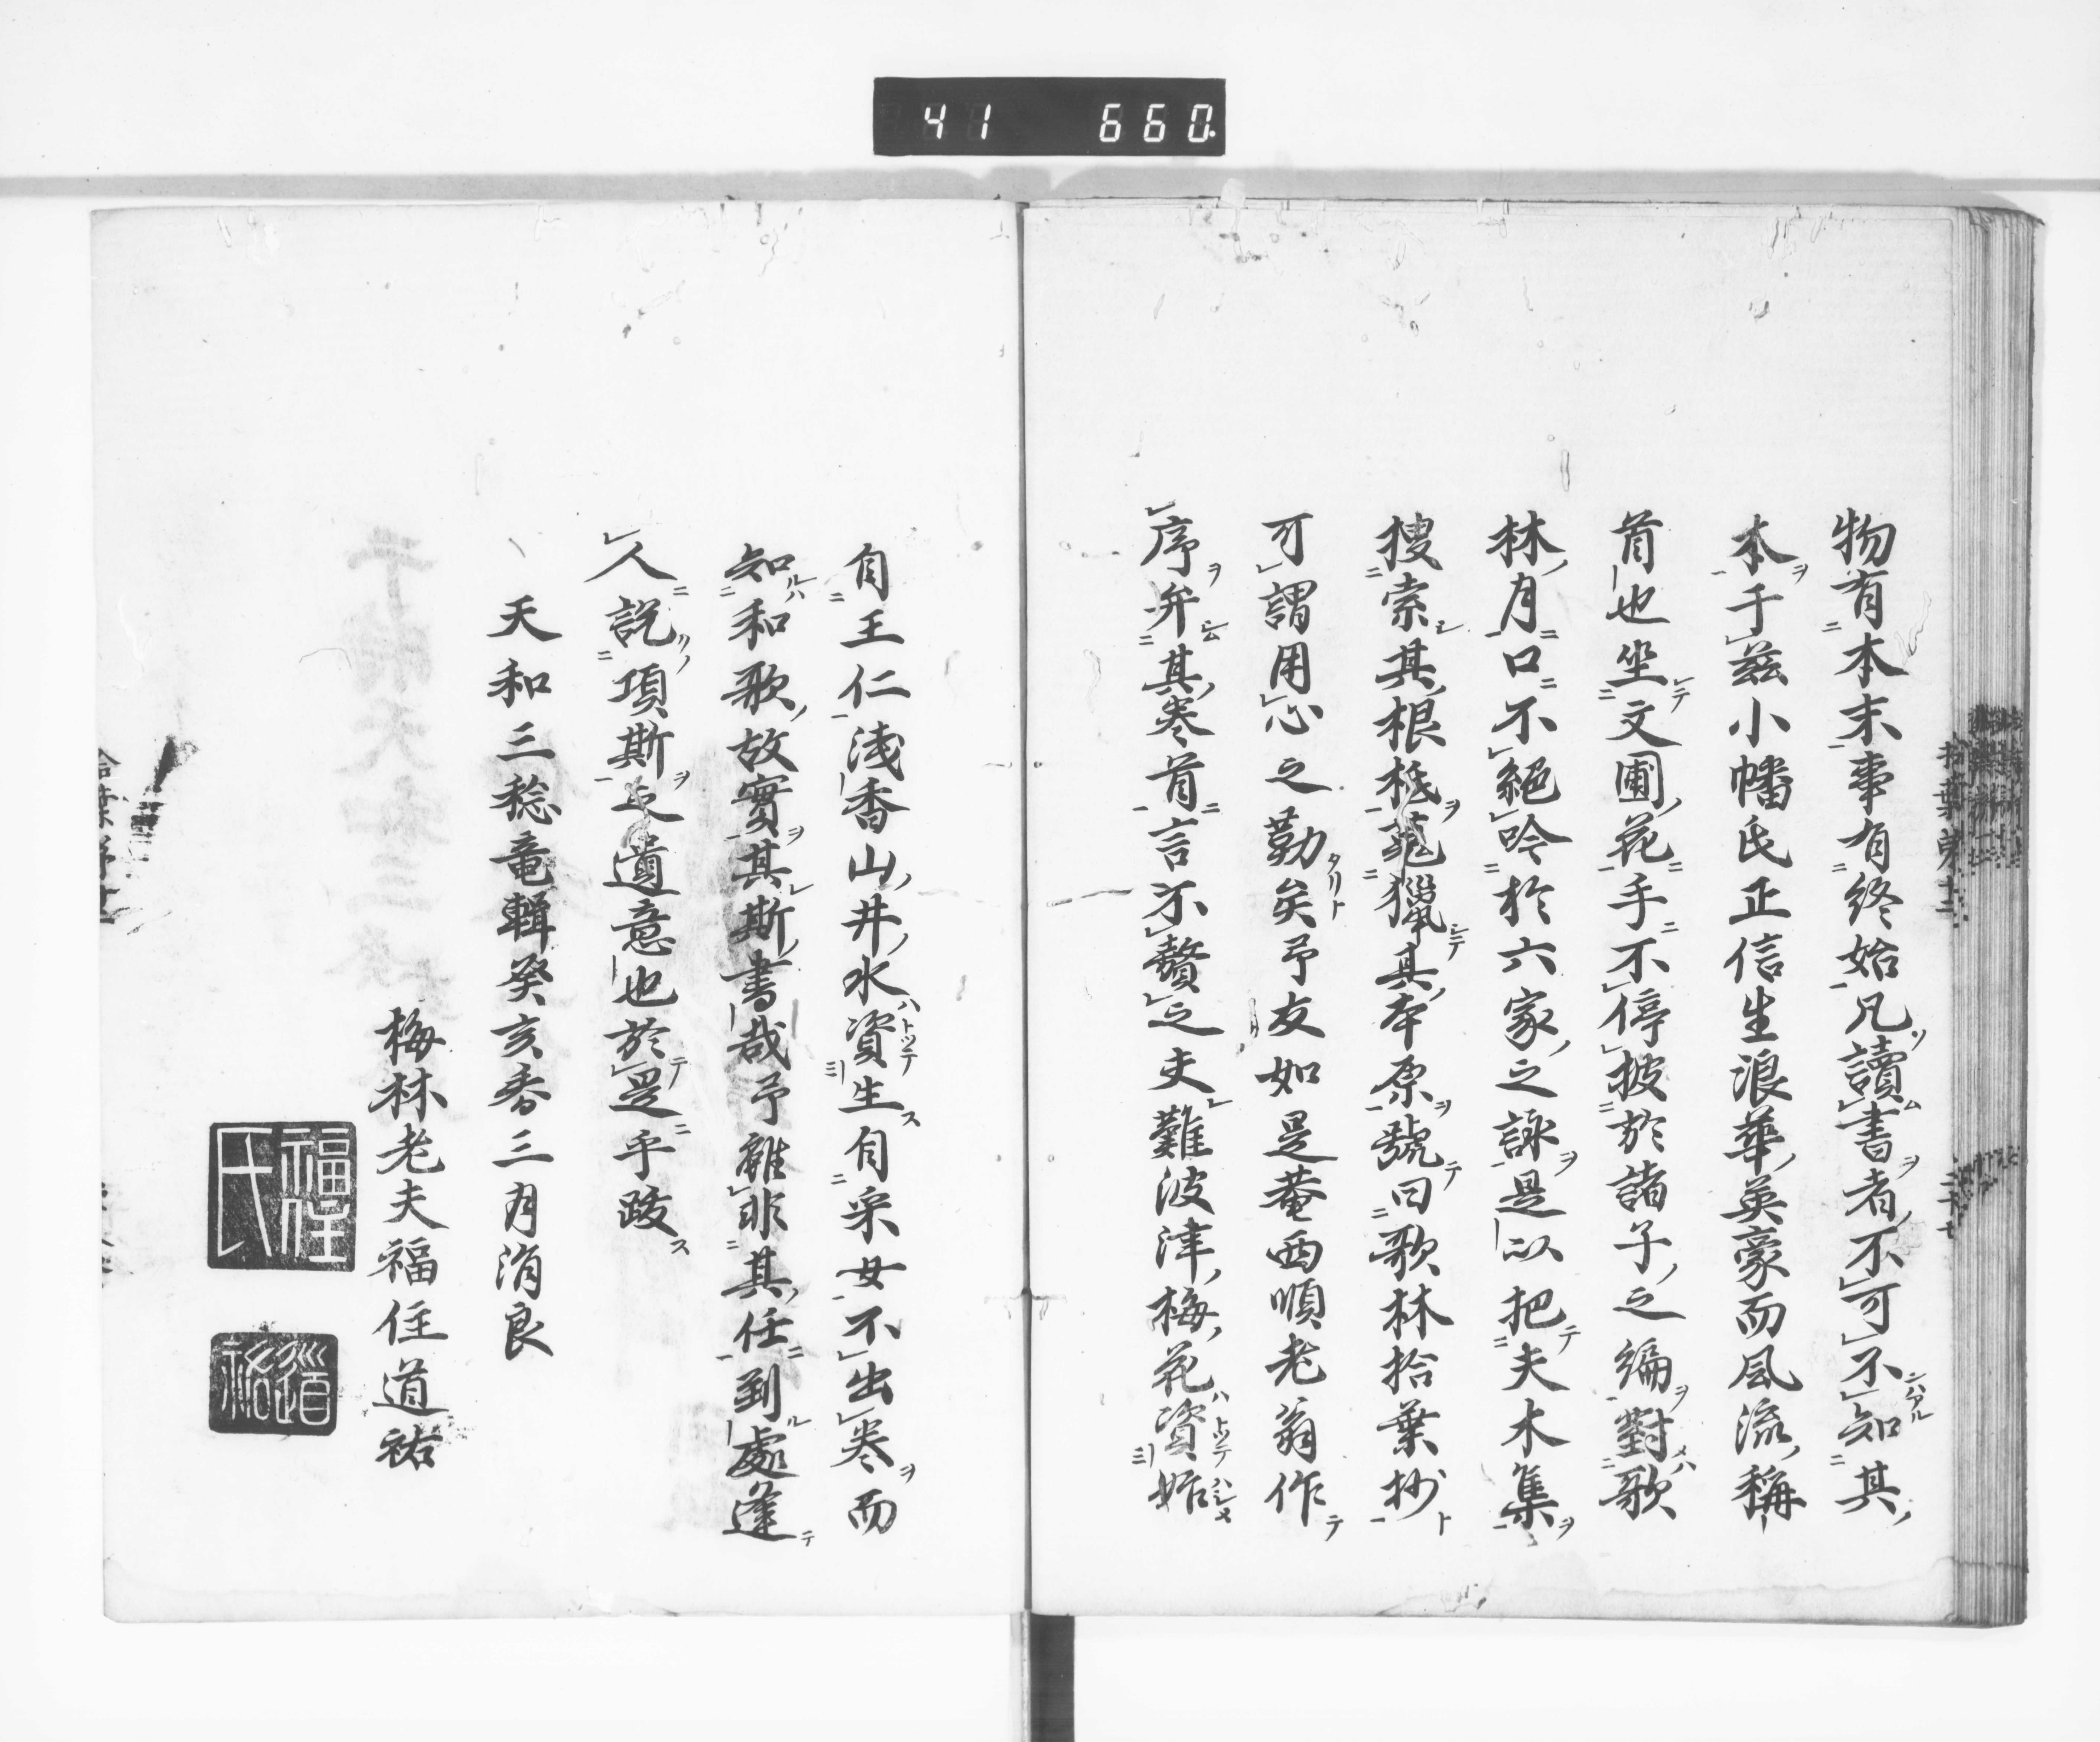 41 660
物有本末事有終始凡讀書者不可不知其
本于茲小幡氏正信生浪華英豪而風流稱
首也坐文圃花手不停披於諸子之編對歌
林月口不絕吟於六家之詠是以把夫木集
搜索其根柢蒐獵其本原號曰歌林拾葉抄
可謂用心之勤矣予友如是菴西順老翁作
序弁其卷首言不贅之夫難波津梅花資始
自王仁淺香山井水資生自采女不出卷而
知和歌故實其斯書哉予雖非其任到處逢
人說項斯之遺意也於是乎跋
天和三稔竜輯癸亥春三月涓良
梅林老夫福住道祐
福住氏
道祐